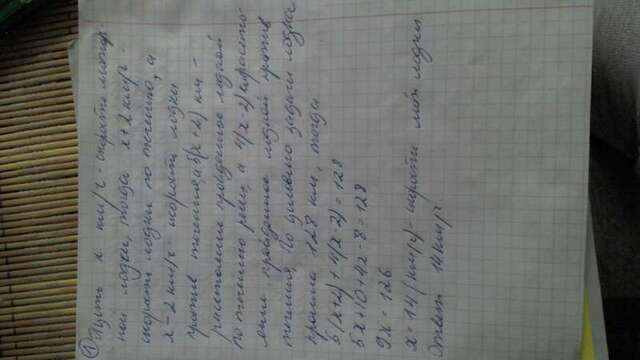 1
Пусть x км/ч - скорость мотор-
ной лодки, тогда x+2 км/ч -
скорость лодки по течению, а
x-2 км/ч - скорость лодки
против течения, а 5(x+2) км -
расстояние пройденное лодкой
по течению реки, а 4(x-2) км расто-
яние, пройденное лодкой против
течения. По условию задачи лодка
прошла 128 км, тогда
5(x+2)+4(x-2)=128
5x+10+4x-8=128
9x=126
x=14 (км/ч) - скорость мот. лодки
Ответ 14 км/ч